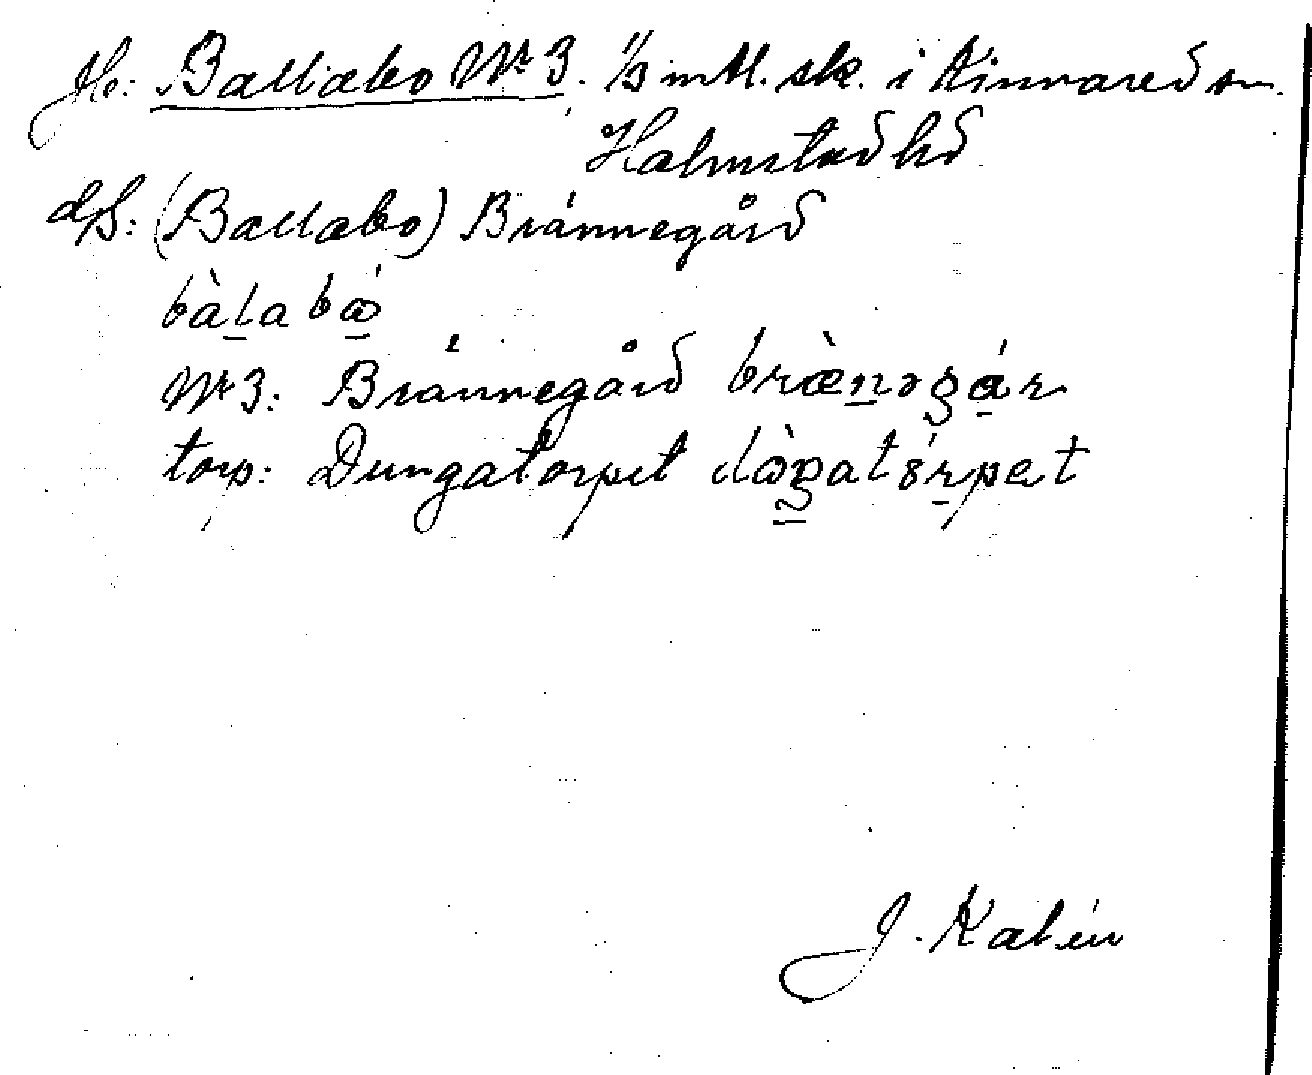 Jb: Ballabo Nr 3. 1/3 mtl. sk. i Kinnared sn.
Halmstad hd
dfs: (Ballabo) Brännegård
bàlabɷ́
Nr 3: Brännegård brænəgár
torp: Dungatorpet
J. Kalén